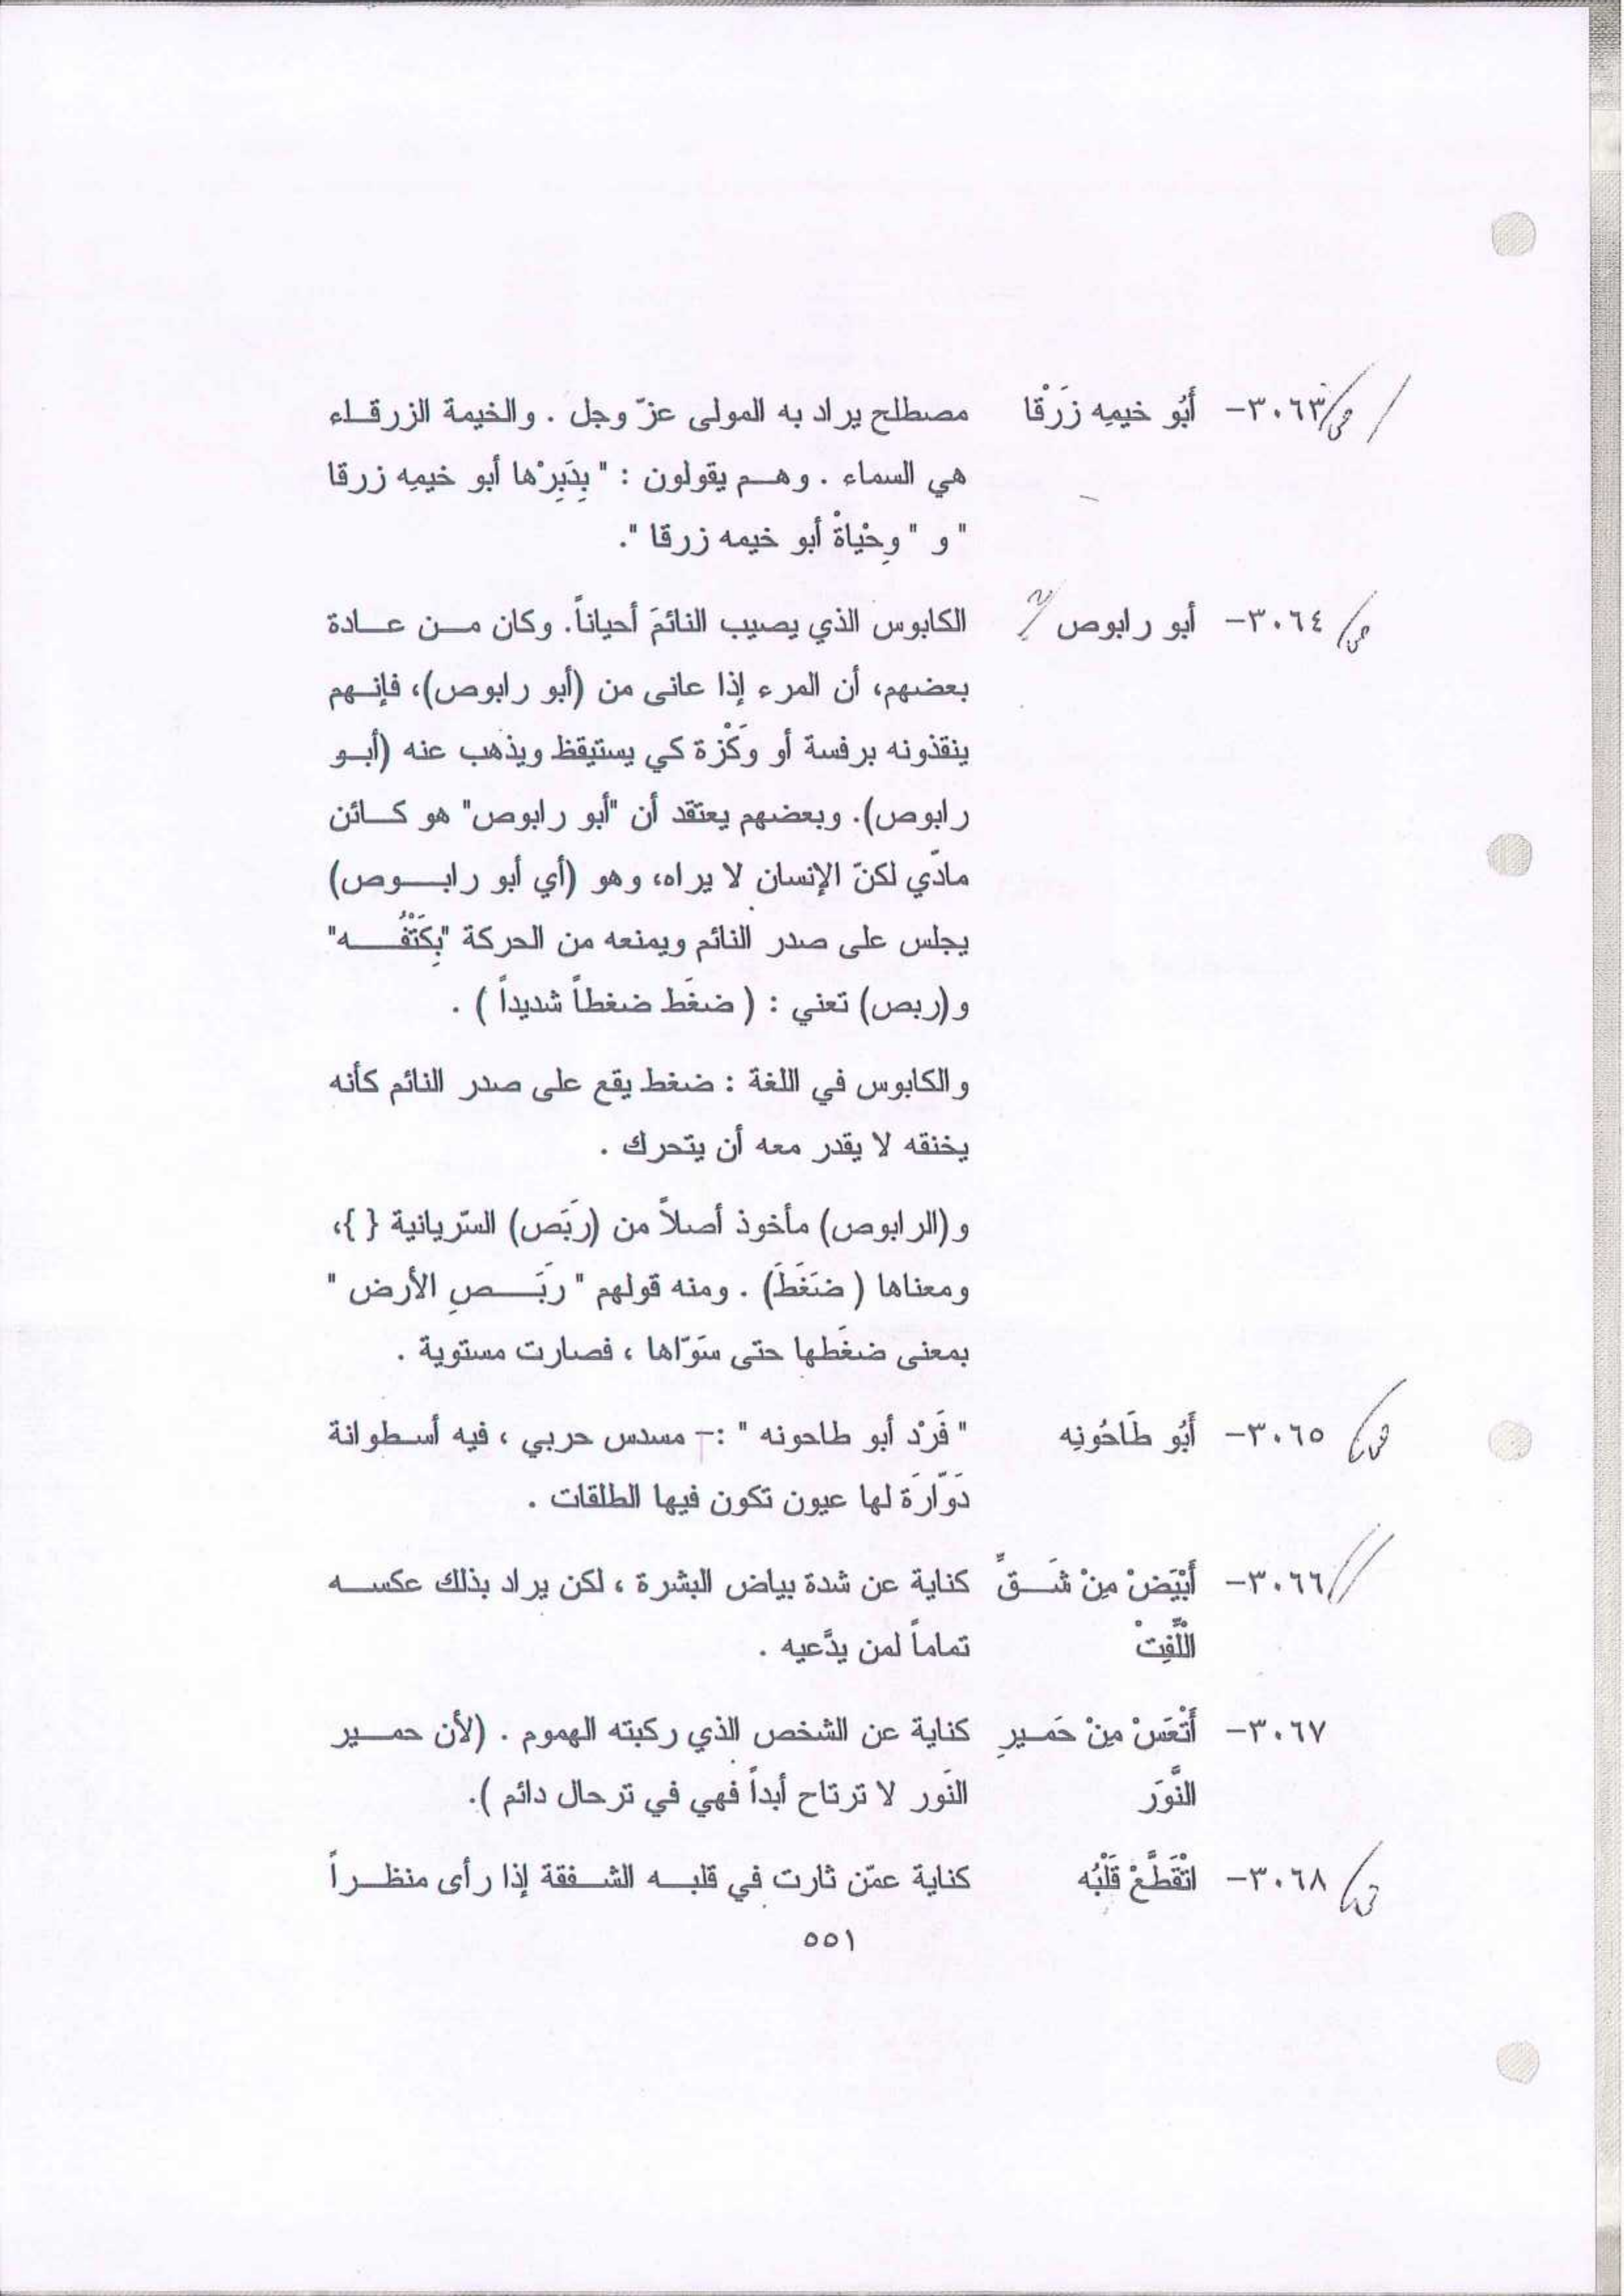 ٣٠٦٣- أَبُو خيمِه زَرْقا مصطلح يراد به المولى عزّ وجل . والخيمة الزرقاء
هي السماء . وهم يقولون : " بِدَبِرْها أبو خيمِه زرقا
" و " وِحْياةْ أبو خيمه زرقا ".
٣٠٦٤- أبو رابوص الكابوس الذي يصيب النائمَ أحياناً. وكان من عادة
بعضهم، أن المرء إذا عانى من (أبو رابوص)، فإنهم
ينقذونه برفسة أو وَكْزة كي يستيقظ ويذهب عنه (أبو
رابوص). وبعضهم يعتقد أن "أبو رابوص" هو كائن
مادّي لكنّ الإنسان لا يراه، وهو (أي أبو رابوص)
يجلس على صدر النائم ويمنعه من الحركة "بِكَتْفُه"
و(ربص) تعني : ( ضغَط ضغطاً شديداً ) .
والكابوس في اللغة : ضغط يقع على صدر النائم كأنه
يخنقه لا يقدر معه أن يتحرك .
و(الرابوص) مأخوذ أصلاً من (ربَص) السّريانية { }،
ومعناها ( ضَغَطَ) . ومنه قولهم " ربَصِ الأرض "
بمعنى ضغَطها حتى سَوّاها ، فصارت مستوية .
٣٠٦٥- أَبُو طَاحُونِه " فَرْد أبو طاحونه " :- مسدس حربي ، فيه أسطوانة
دَوّارَة لها عيون تكون فيها الطلقات .
٣٠٦٦- أَبْيَضْ مِنْ شَقِّ كناية عن شدة بياض البشرة ، لكن يراد بذلك عكسه
اللِّفِتْ تماماً لمن يدَّعيه .
٣٠٦٧- أَتْعَسْ مِنْ حَميرِ كناية عن الشخص الذي ركبته الهموم . (لأن حمير
النَّوَر النَور لا ترتاح أبداً فهي في ترحال دائم ).
٣٠٦٨- اتْقَطَّعْ قَلْبُه كناية عمّن ثارت في قلبه الشفقة إذا رأى منظراً
٥٥١